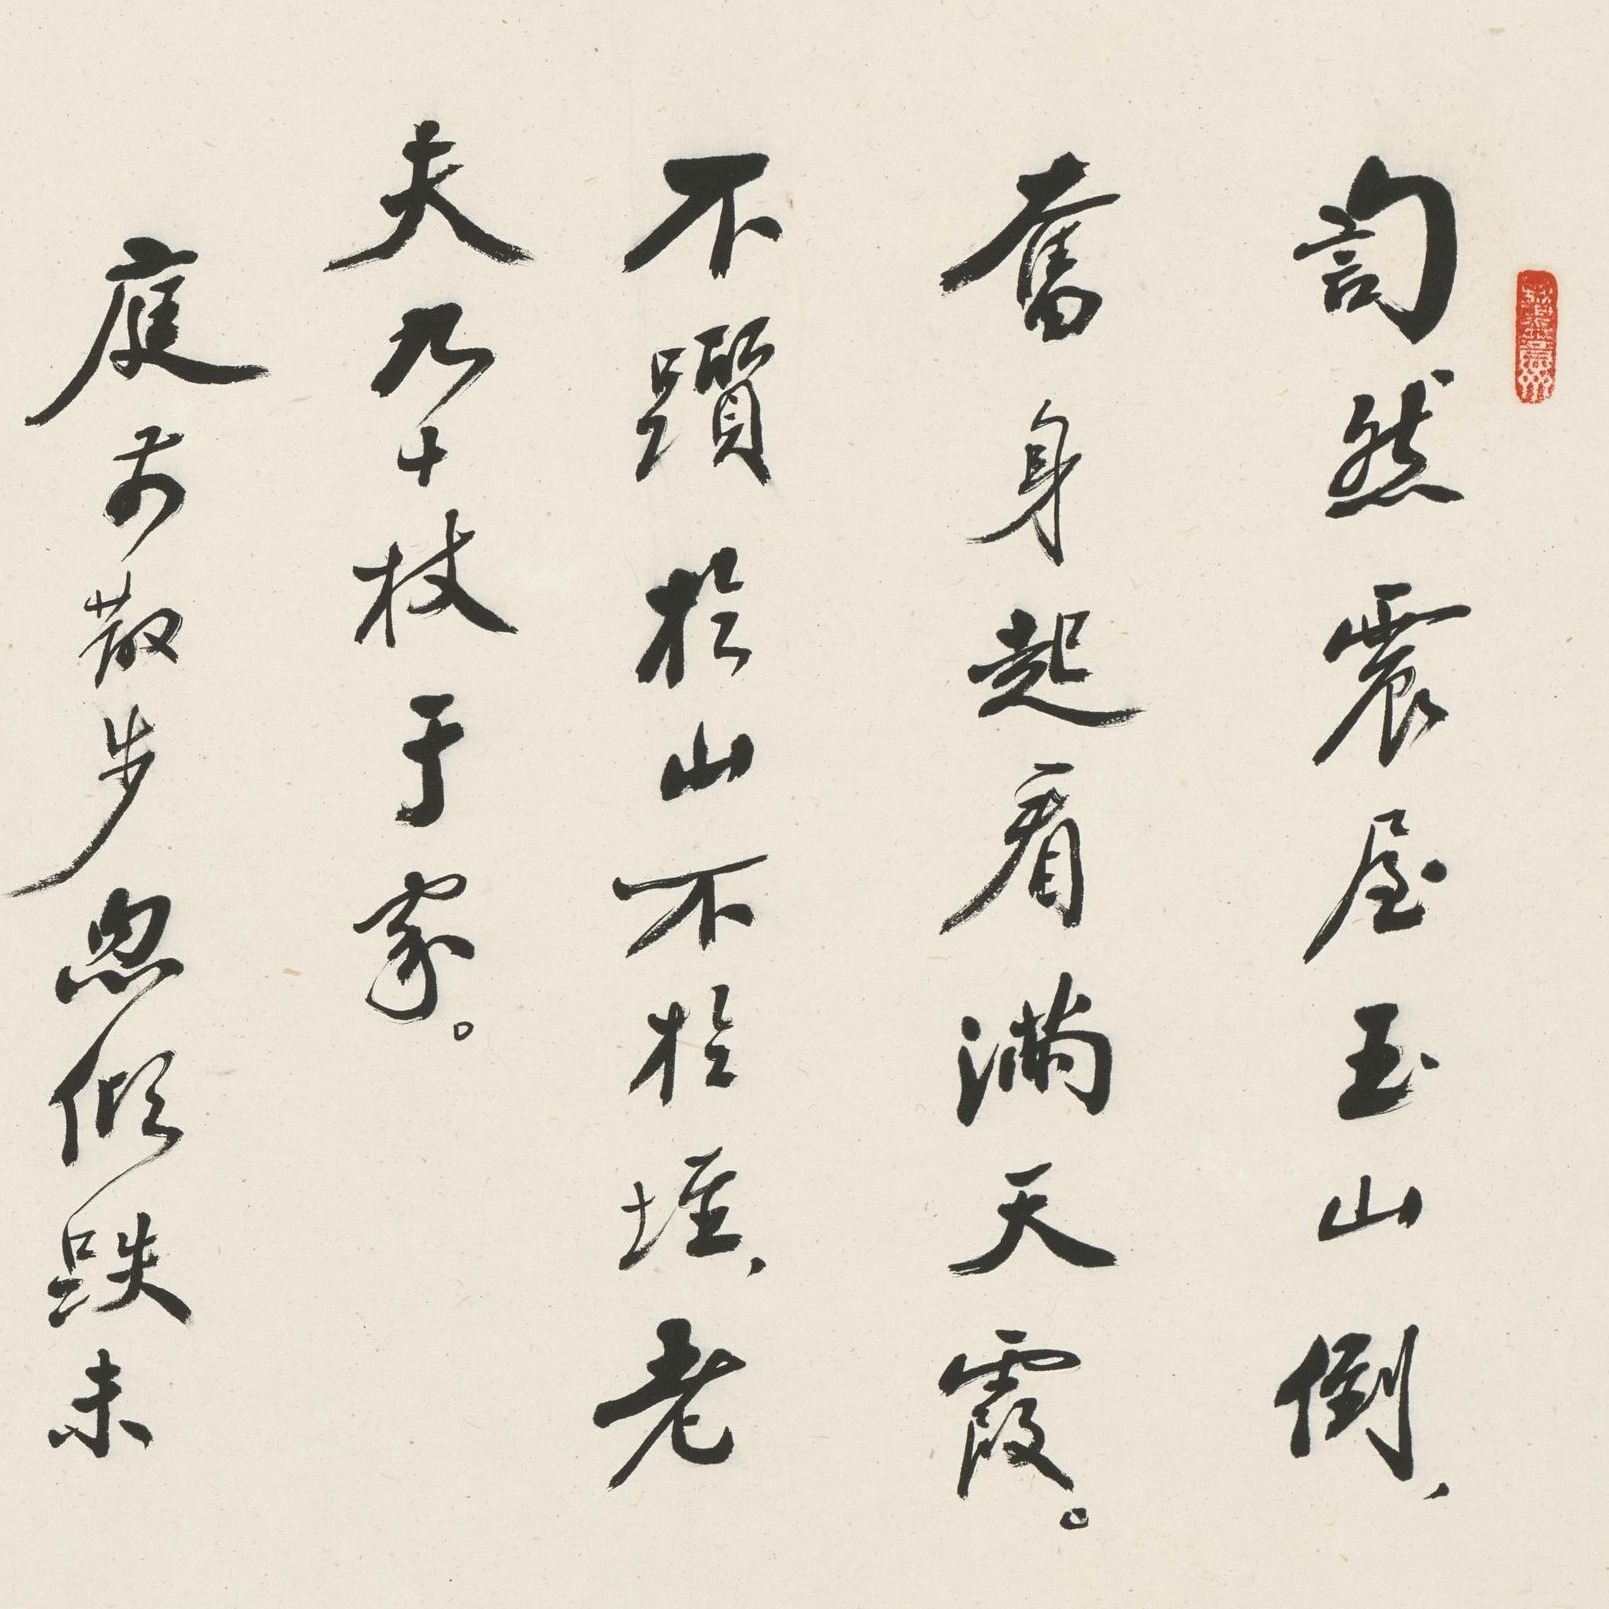 訇然震屋玉山倒，
奮身起看滿天霞。
不躓於山不於垤，老
夫九十杖于家。
庭前散步忽傾跌未